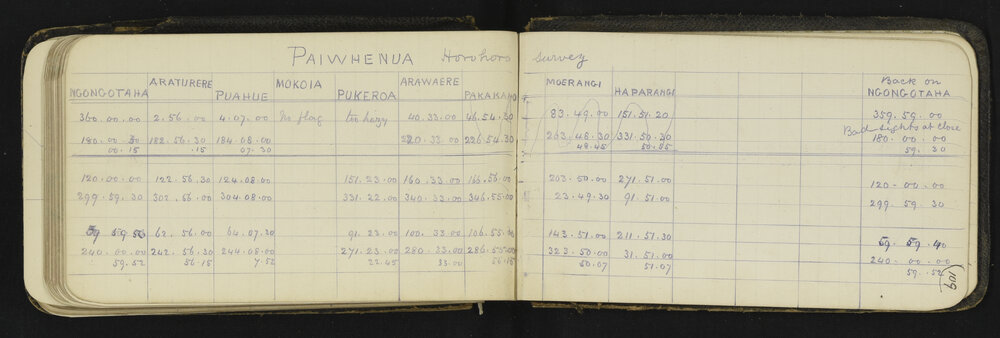 PAIWHENUA Horohoro survey
NGONGOTAHA ARATURERE PUAHUE MOKOIA PUKEROA ARAWAERE PAKAKAHO MOERANGI HAPARANGI Back on NGONGOTAHA
360.00.00 2.56.00 4.07.00 No flag too hazy 40.33.00 46.54.30 83.49.00 151.51.20 359.59.00
Bad sights at close
180.00.30 182.56.30 184.08.00 220.33.00 226.54.30 263.48.30 331.50.30 180.00.00
00.15 .15 07.30 48.45 50.55 59.30
120.00.00 122.56.30 124.08.00 151.23.00 160.33.00 166.56.00 203.50.00 271.51.00 120.00.00
299.59.30 302.56.00 304.08.00 331.22.00 340.33.00 346.55.00 23.49.30 91.51.00 299.59.30
59.59.50 62.56.00 64.07.30 91.23.00 100.33.00 106.55.00 143.51.00 211.51.30 59.59.40
240.00.00 242.56.30 244.08.00 271.23.00 280.33.00 286.55.00 323.50.00 31.51.00 240.00.00
59.52 56.15 7.52 22.45 33.00 50.07 51.07 59.52
109